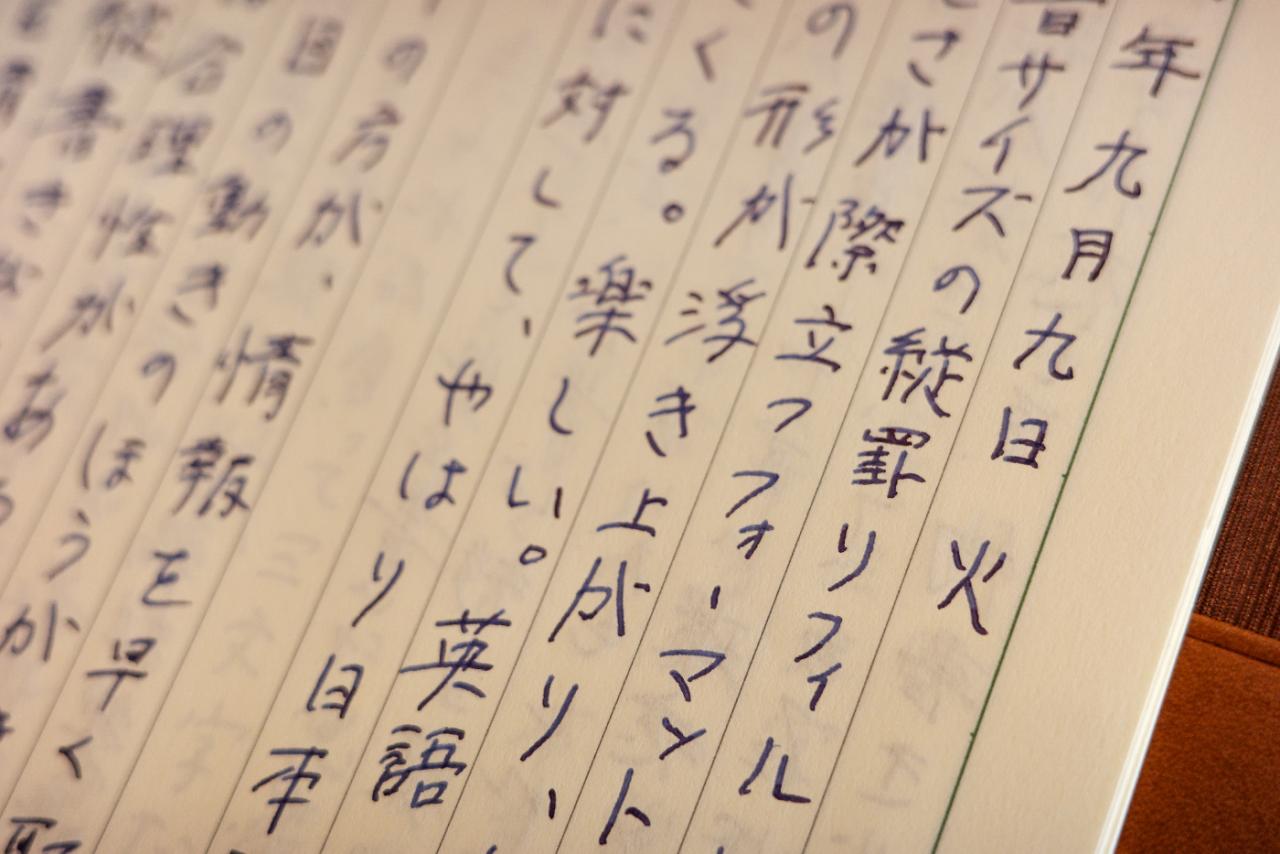 年九月九日 火
サイズの縦罫リフィル
さが際立つフォーマント
の形が浮き上がり、
くる。楽しい。英語
に対して、やはり日本
の方が、情報を早く取
目の動きのほうが
合理性がある
縦書き